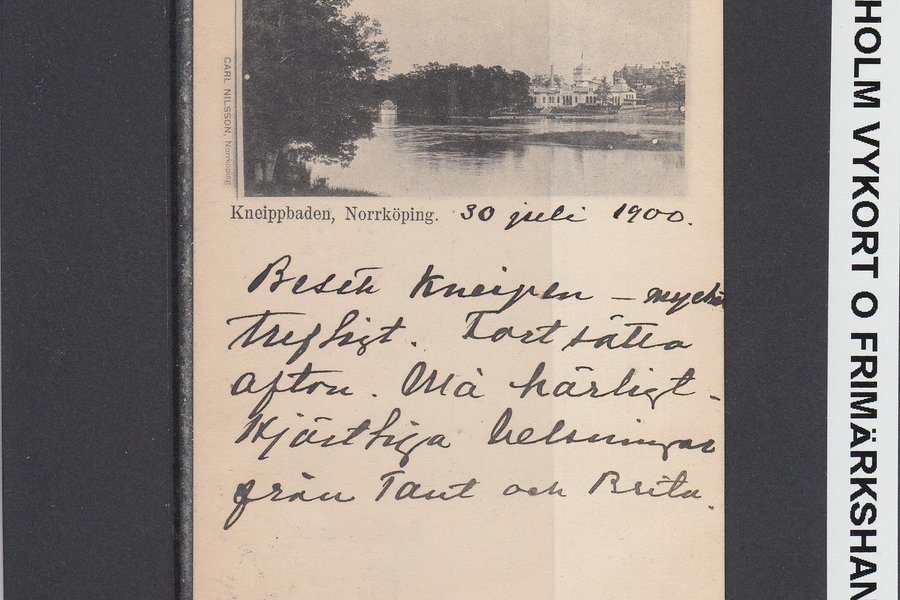 CARL NILSSON, Norrköping
Kneippbaden, Norrköping. 30 juli 1900.
Besett Kneipen – mycket
trefligt. Fortsätta
afton. Må härligt.
Hjärtliga helsningar
från Tant och Brita.
HOLM VYKORT O FRIMÄRKSHAN